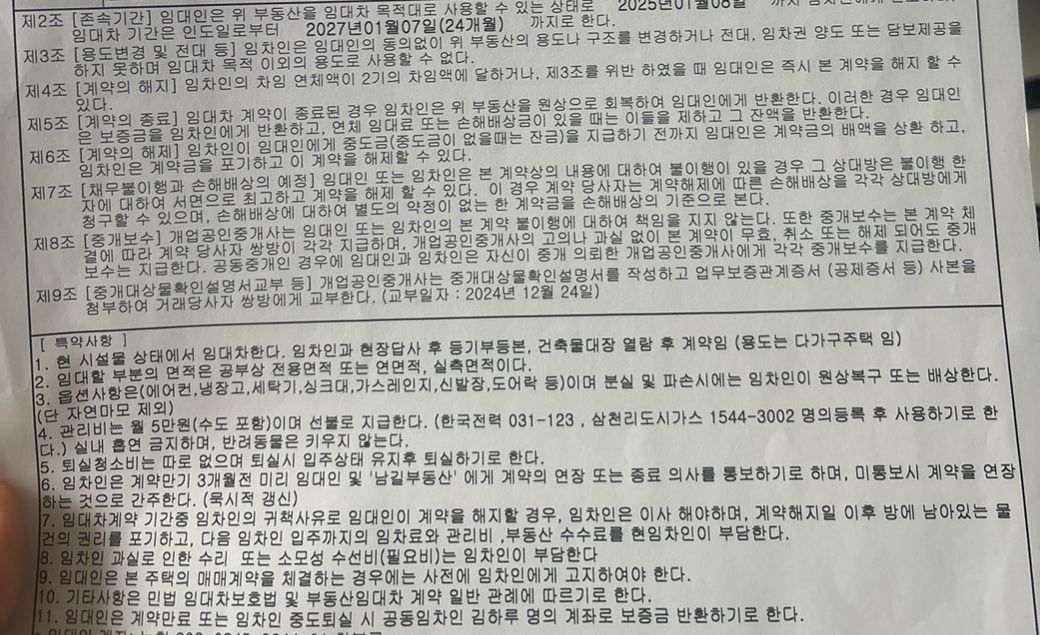 제2조 [존속기간] 임대인은 위 부동산을 임대차 목적대로 사용할 수 있는 상태로 2025년01월08일 까지
임대차 기간은 인도일로부터 2027년01월07일(24개월) 까지로 한다.
제3조 [용도변경 및 전대 등] 임차인은 임대인의 동의없이 위 부동산의 용도나 구조를 변경하거나 전대, 임차권 양도 또는 담보제공을
하지 못하며 임대차 목적 이외의 용도로 사용할 수 없다.
제4조 [계약의 해지] 임차인의 차임 연체액이 2기의 차임액에 달하거나, 제3조를 위반 하였을 때 임대인은 즉시 본 계약을 해지 할 수
있다.
제5조 [계약의 종료] 임대차 계약이 종료된 경우 임차인은 위 부동산을 원상으로 회복하여 임대인에게 반환한다. 이러한 경우 임대인
은 보증금을 임차인에게 반환하고, 연체 임대료 또는 손해배상금이 있을 때는 이들을 제하고 그 잔액을 반환한다.
제6조 [계약의 해제] 임차인이 임대인에게 중도금(중도금이 없을때는 잔금)을 지급하기 전까지 임대인은 계약금의 배액을 상환 하고,
임차인은 계약금을 포기하고 이 계약을 해제할 수 있다.
제7조 [채무불이행과 손해배상의 예정] 임대인 또는 임차인은 본 계약상의 내용에 대하여 불이행이 있을 경우 그 상대방은 불이행 한
자에 대하여 서면으로 최고하고 계약을 해제 할 수 있다. 이 경우 계약 당사자는 계약해제에 따른 손해배상을 각각 상대방에게
청구할 수 있으며, 손해배상에 대하여 별도의 약정이 없는 한 계약금을 손해배상의 기준으로 본다.
제8조 [중개보수] 개업공인중개사는 임대인 또는 임차인의 본 계약 불이행에 대하여 책임을 지지 않는다. 또한 중개보수는 본 계약 체
결에 따라 계약 당사자 쌍방이 각각 지급하며, 개업공인중개사의 고의나 과실 없이 본 계약이 무효, 취소 또는 해제 되어도 중개
보수는 지급한다. 공동중개인 경우에 임대인과 임차인은 자신이 중개 의뢰한 개업공인중개사에게 각각 중개보수를 지급한다.
제9조 [중개대상물확인설명서교부 등] 개업공인중개사는 중개대상물확인설명서를 작성하고 업무보증관계증서 (공제증서 등) 사본을
첨부하여 거래당사자 쌍방에게 교부한다. (교부일자 : 2024년 12월 24일)
[ 특약사항 ]
1. 현 시설물 상태에서 임대차한다. 임차인과 현장답사 후 등기부등본, 건축물대장 열람 후 계약임 (용도는 다가구주택 임)
2. 임대할 부분의 면적은 공부상 전용면적 또는 연면적, 실측면적이다.
3. 옵션사항은(에어컨,냉장고,세탁기,싱크대,가스레인지,신발장,도어락 등)이며 분실 및 파손시에는 임차인이 원상복구 또는 배상한다.
(단 자연마모 제외)
4. 관리비는 월 5만원(수도 포함)이며 선불로 지급한다. (한국전력 031-123 , 삼천리도시가스 1544-3002 명의등록 후 사용하기로 한
다.) 실내 흡연 금지하며, 반려동물은 키우지 않는다.
5. 퇴실청소비는 따로 없으며 퇴실시 입주상태 유지후 퇴실하기로 한다.
6. 임차인은 계약만기 3개월전 미리 임대인 및 '남길부동산' 에게 계약의 연장 또는 종료 의사를 통보하기로 하며, 미통보시 계약을 연장
하는 것으로 간주한다. (묵시적 갱신)
7. 임대차계약 기간중 임차인의 귀책사유로 임대인이 계약을 해지할 경우, 임차인은 이사 해야하며, 계약해지일 이후 방에 남아있는 물
건의 권리를 포기하고, 다음 임차인 입주까지의 임차료와 관리비 ,부동산 수수료를 현임차인이 부담한다.
8. 임차인 과실로 인한 수리 또는 소모성 수선비(필요비)는 임차인이 부담한다
9. 임대인은 본 주택의 매매계약을 체결하는 경우에는 사전에 임차인에게 고지하여야 한다.
10. 기타사항은 민법 임대차보호법 및 부동산임대차 계약 일반 관례에 따르기로 한다.
11. 임대인은 계약만료 또는 임차인 중도퇴실 시 공동임차인 김하루 명의 계좌로 보증금 반환하기로 한다.